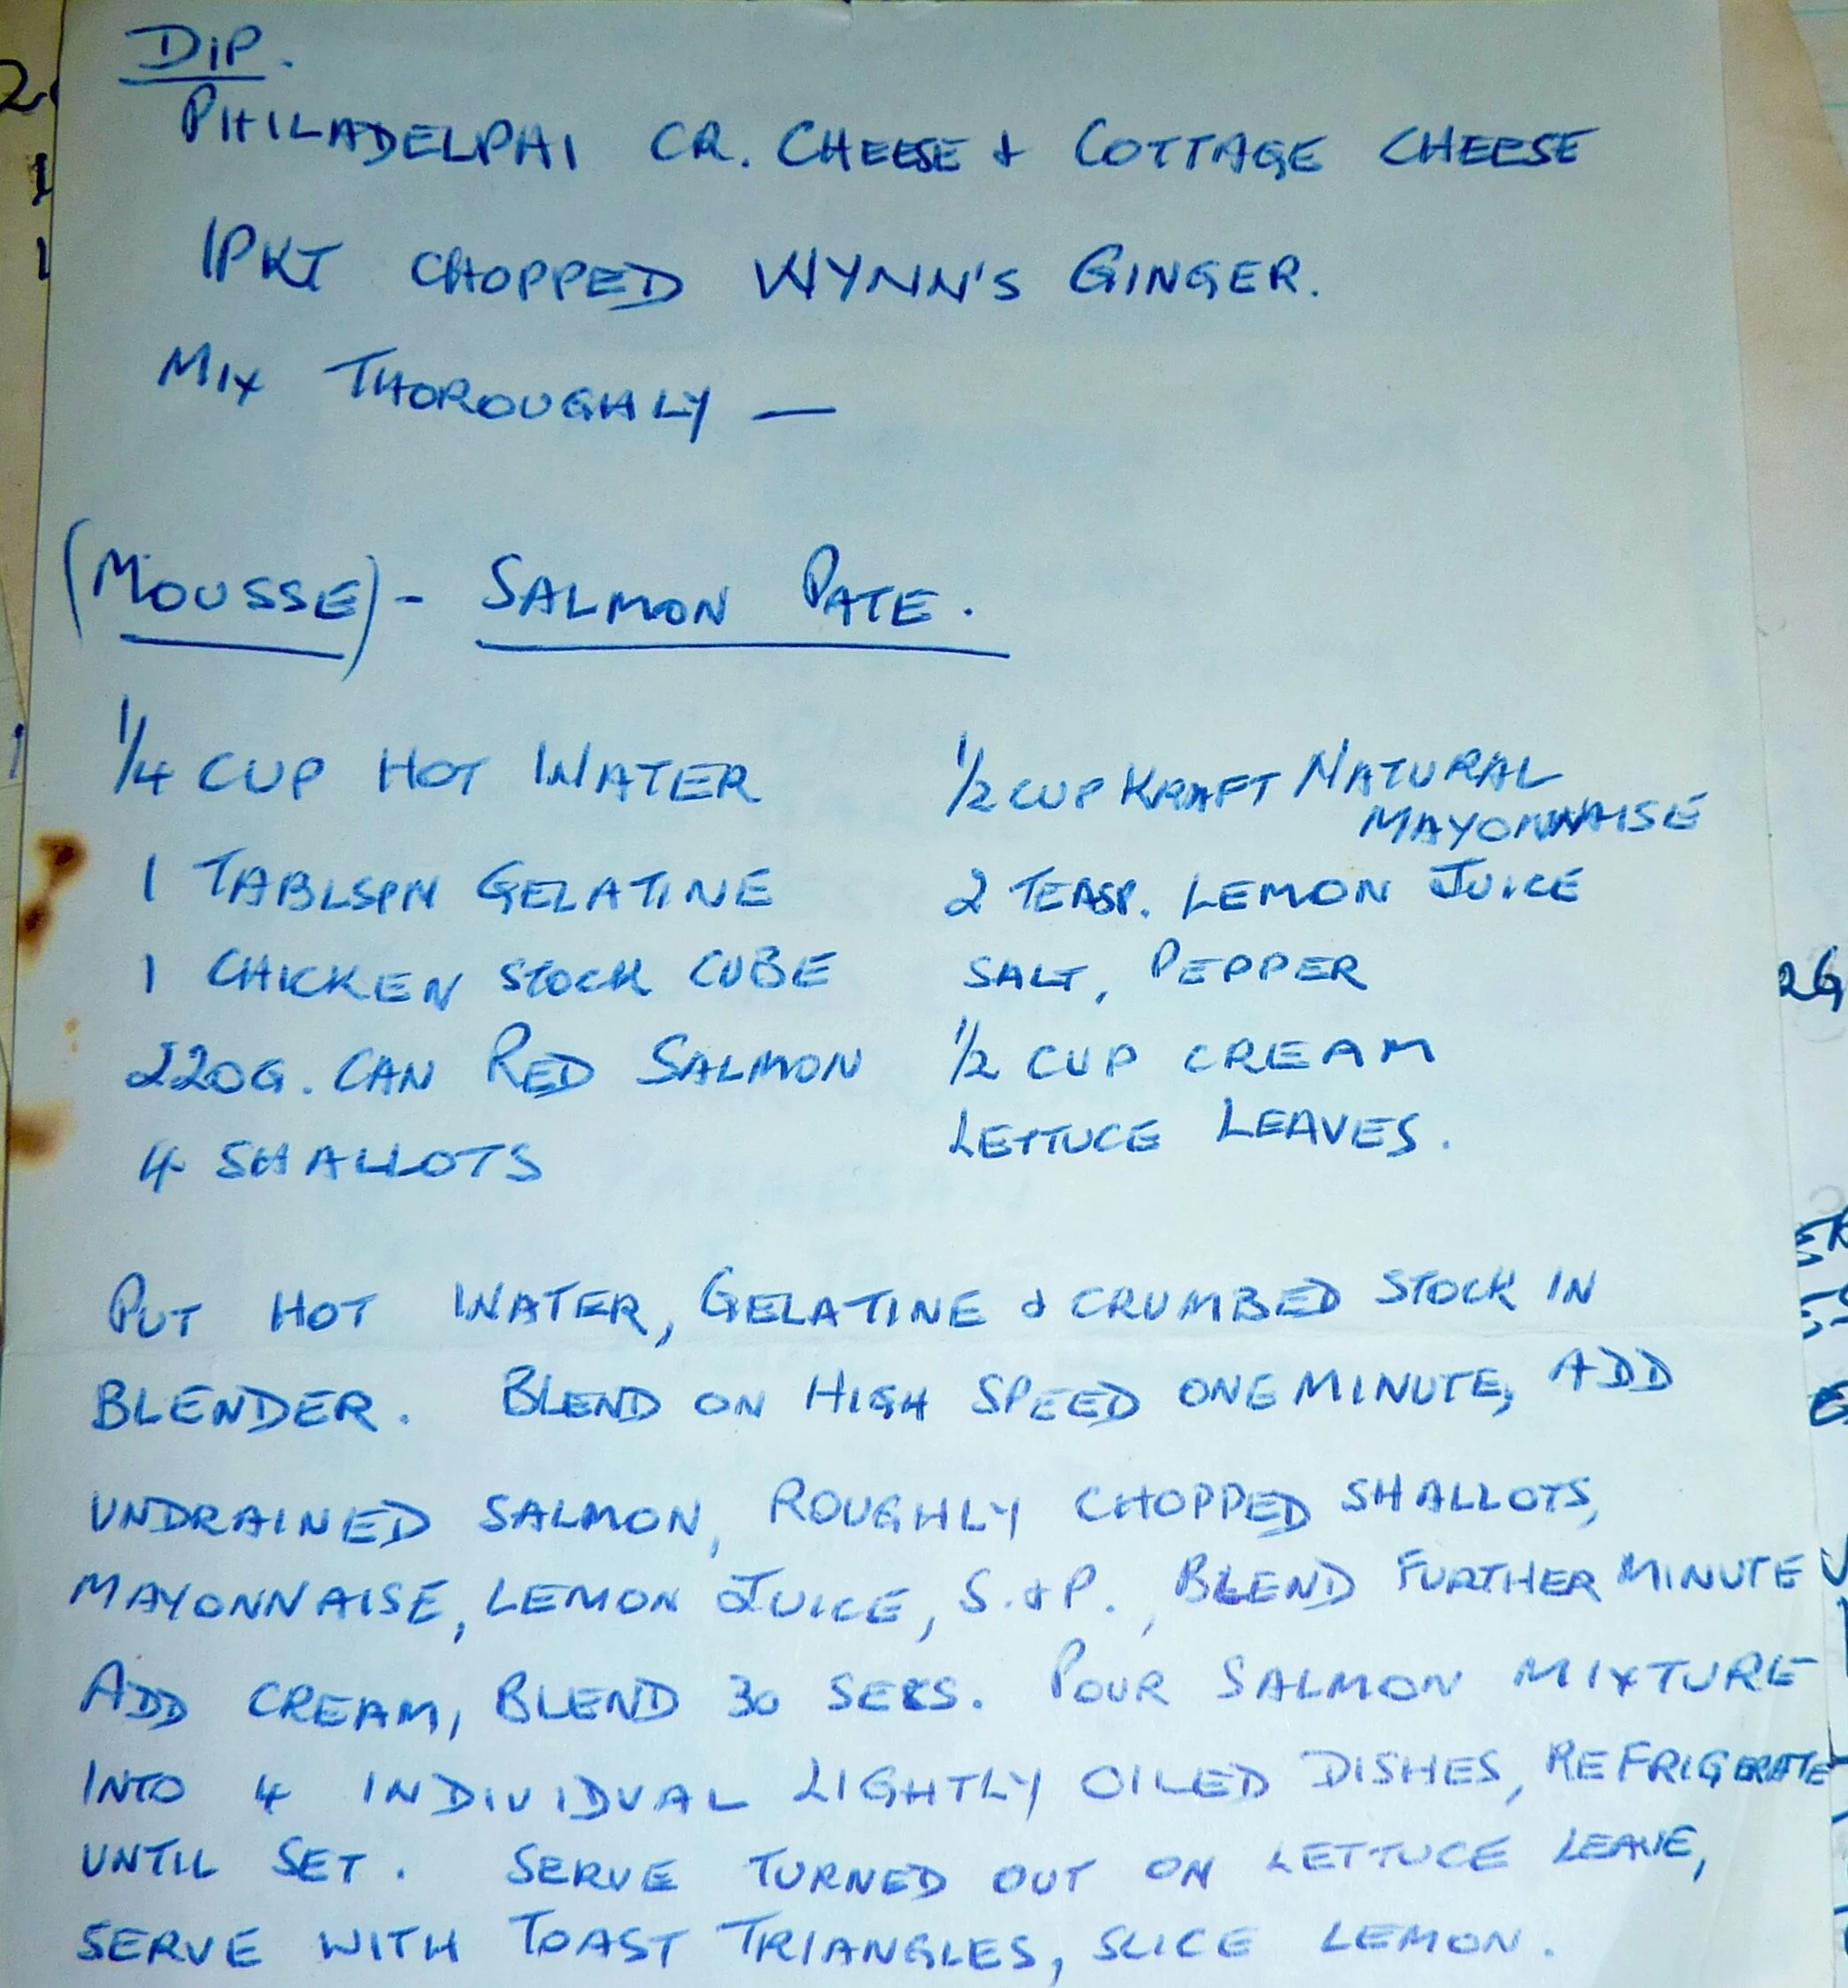 DIP.
PHILADELPHAI CR. CHEESE & COTTAGE CHEESE
1PKT CHOPPED WYNN'S GINGER.
MIX THOROUGHLY —
(MOUSSE) - SALMON PATE.
1/4 CUP HOT WATER
1 TABLSPN GELATINE
1 CHICKEN STOCK CUBE
220G. CAN RED SALMON
4 SHALLOTS
1/2 CUP KRAFT NATURAL
MAYONNAISE
2 TEASP. LEMON JUICE
SALT, PEPPER
1/2 CUP CREAM
LETTUCE LEAVES.
PUT HOT WATER, GELATINE & CRUMBED STOCK IN
BLENDER. BLEND ON HIGH SPEED ONE MINUTE, ADD
UNDRAINED SALMON, ROUGHLY CHOPPED SHALLOTS,
MAYONNAISE, LEMON JUICE, S. & P., BLEND FURTHER MINUTE
ADD CREAM, BLEND 30 SECS. POUR SALMON MIXTURE
INTO 4 INDIVIDUAL LIGHTLY OILED DISHES, REFRIGERATE
UNTIL SET. SERVE TURNED OUT ON LETTUCE LEAVE,
SERVE WITH TOAST TRIANGLES, SLICE LEMON.